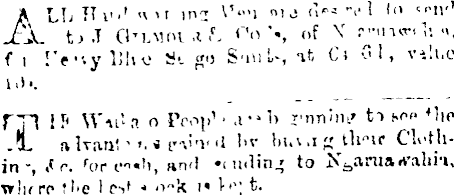 ALL Hard working Men are desired to send
to J Gilmour & Co's, of N aruawahia,
for Petty Blue Serge Suits, at £3 61, value
THE Waikato People are beginning to see the
advantages gained by buying their Cloth-
ing, &c. for cash, and sending to Ngaruawahia,
where the best stock is kept.